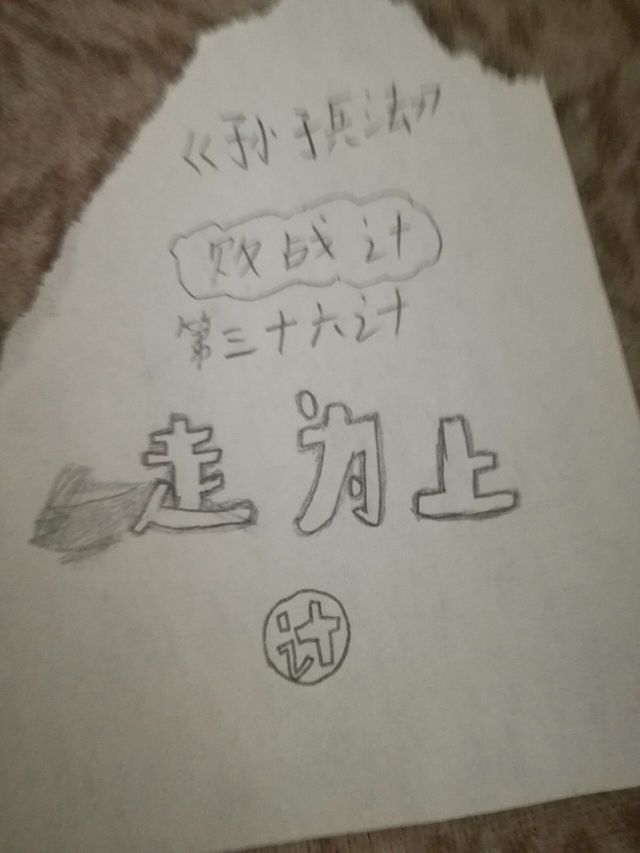 《孙子兵法》
败战计
第三十六计
走为上
计